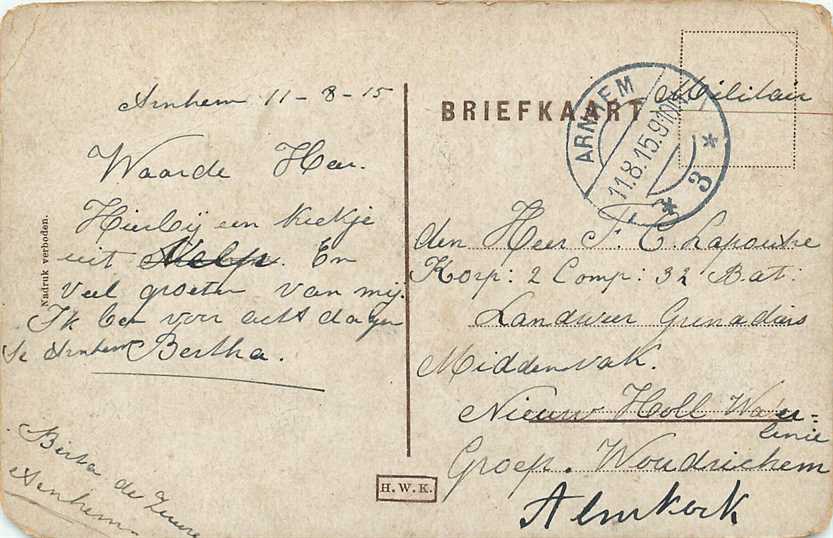 Arnhem 11-8-15
Waarde Her.
Hierbij een kiekje
uit Velp. En
veel groeten van mij.
Ik ben voor acht dagen
te Arnhem Bertha.
Berta de
Arnhem
Nadruk verboden.
H.W.K.
BRIEFKAART
Militair
ARNHEM
11.8.15.9
* 3 *
den Heer F. C. Lapoutre
Korp: 2 Comp: 32 Bat:
Landweer Grenadiers
Middenvak.
Nieuw Holl Water-
linie
Groep. Woudrichem
Almkerk